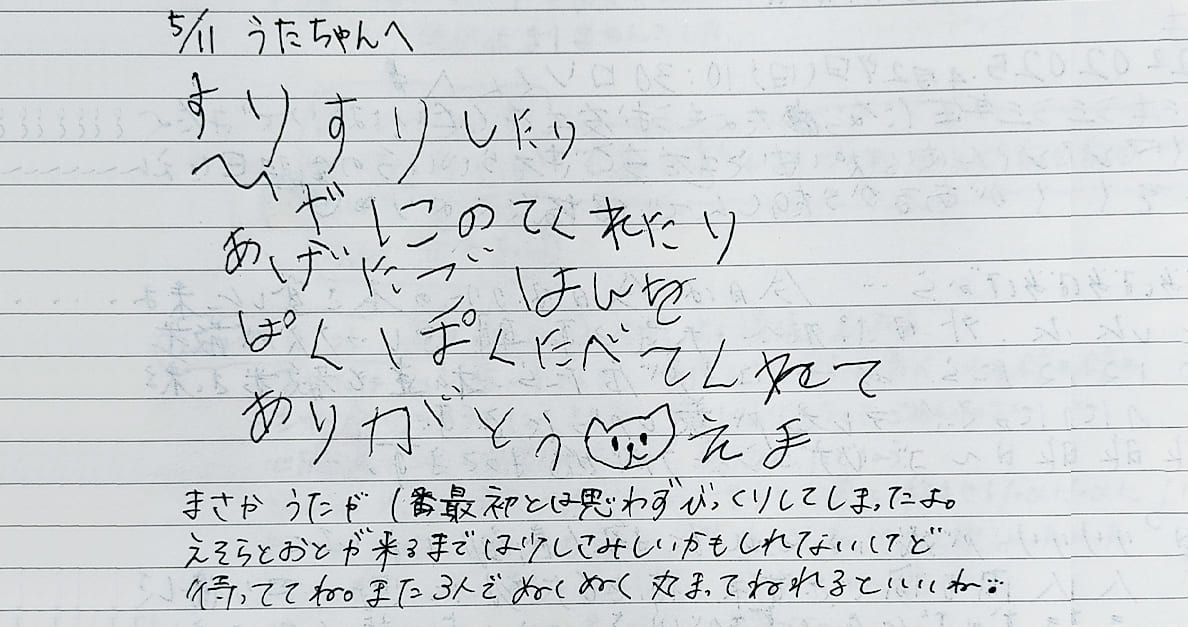 5/11 うたちゃんへ
すりすりしたり
へやでしこのてくれたり
あげたごはんを
ぱくぱくたべてくれて
ありがとう えま
まさか うたが 1番最初とは思わずびっくりしてしまったよ。
えそらとおとが来るまでは少しさみしいかもしれてないけど
待っててね。また3人でぬくぬく丸まってねれるといいね